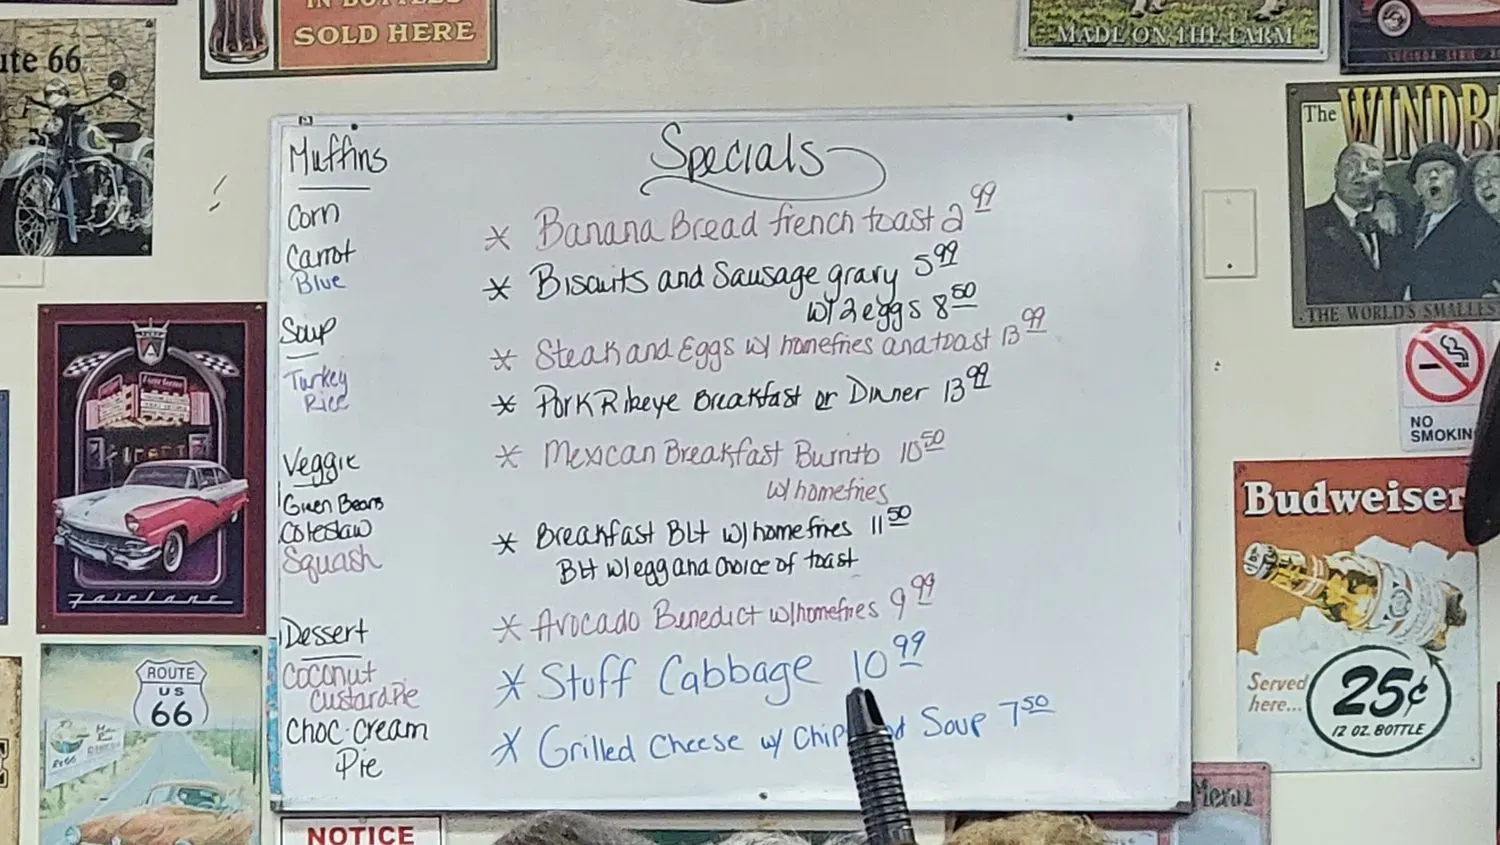 IN BOTTLES
SOLD HERE
MADE ON THE FARM
ute 66
The WINDB
THE WORLD'S SMALLES
NO
SMOKIN
Muffins
Corn
Carrot
Blue
Soup
Turkey
Rice
Veggie
Green Beans
Coleslaw
Squash
Dessert
Coconut
Custard Pie
Choc. Cream
Pie
Specials
* Banana Bread french toast 2 99
* Biscuits and Sausage gravy 5 99
w/ 2 eggs 8 50
* Steak and Eggs w/ homefries and toast 13 99
* Pork Ribeye Breakfast or Dinner 13 99
* Mexican Breakfast Burrito 10 50
w/ homefries
* Breakfast BLT w/ homefries 11 50
BLT w/ egg and choice of toast
* Avocado Benedict w/ homefries 9 99
* Stuff Cabbage 10 99
* Grilled Cheese w/ Chip Soup 7 50
Fairlane
ROUTE
US
66
Budweiser
Served
here...
25¢
12 OZ. BOTTLE
NOTICE
Menu